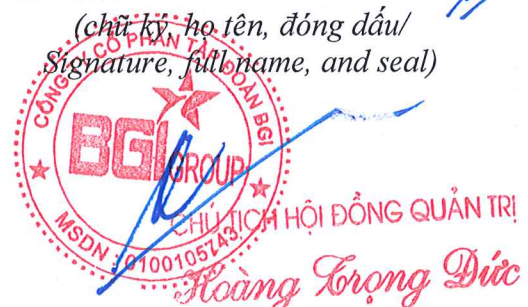 (chữ ký, họ tên, đóng dấu/
Signature, full name, and seal)
CÔNG TY CỔ PHẦN TẬP ĐOÀN BGI
BGI
GROUP
MSDN: 0100105743
CHỦ TỊCH HỘI ĐỒNG QUẢN TRỊ
Hoàng Trọng Đức